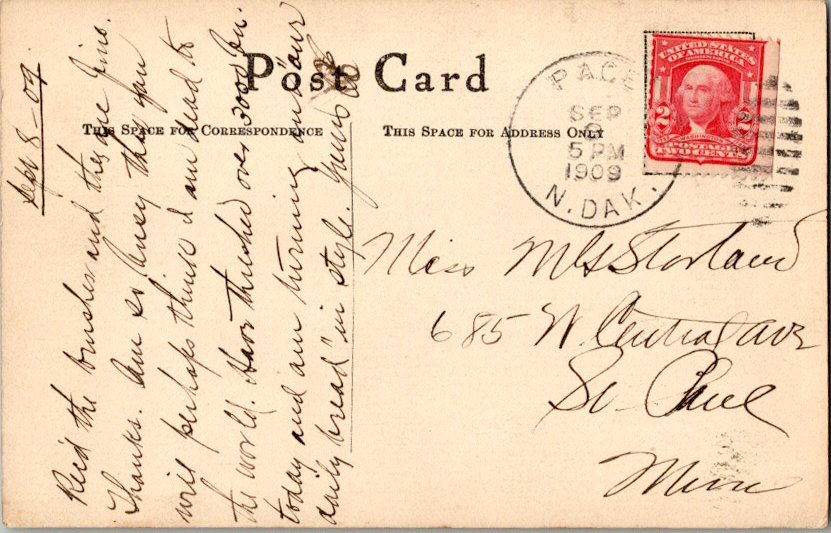 Post Card
THIS SPACE FOR CORRESPONDENCE
THIS SPACE FOR ADDRESS ONLY
Sept 8-09.
Rec'd the brushes and they are fine.
Thanks. Am so busy that you
will perhaps think I am dead to
the world. Have thrashed over 3000 bu.
today and am turning out "our
daily bread" in style. Yours
PACE
SEP
5 PM
1909
N. DAK.
UNITED STATES
OF AMERICA
2 2
WASHINGTON
POSTAGE
TWO CENTS
Miss M G Storland
685 W. Central Ave
St. Paul
Minn